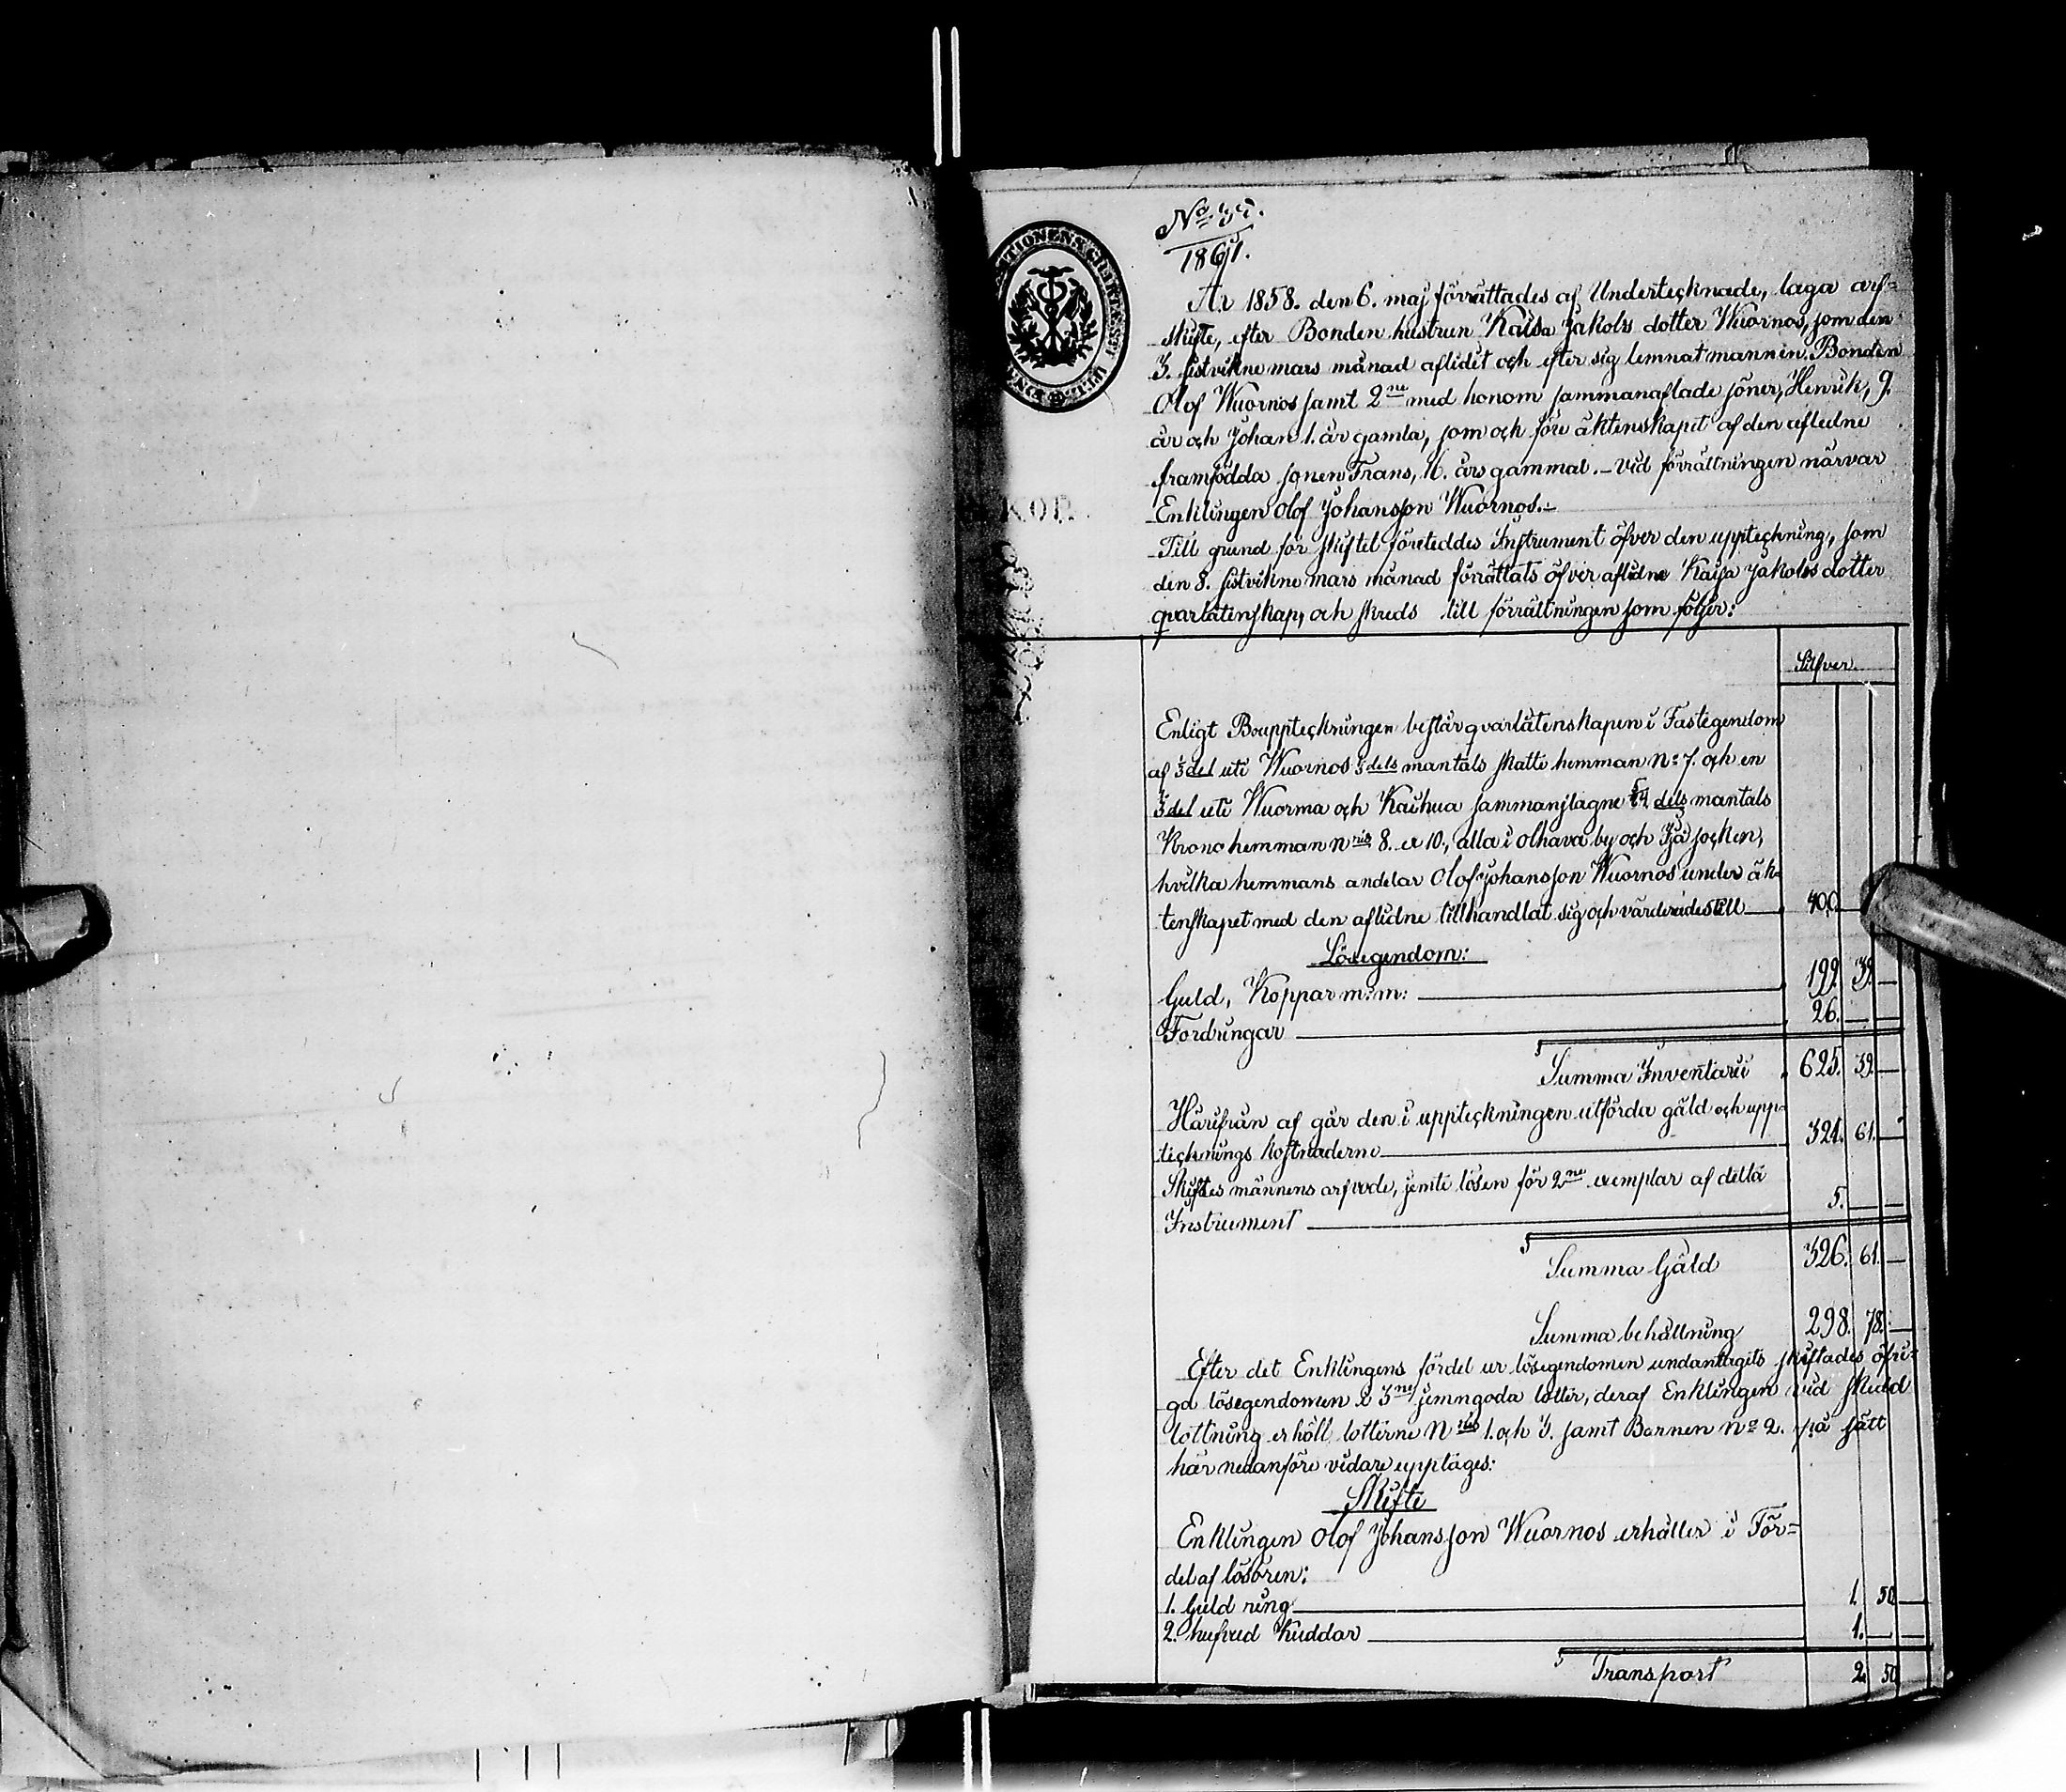 1861.
År 1858. den 6. maj förrättades af Undertecknade, laga arf-
skifte, efter Bonden hustrun Kaisa Jakobs dotter Wuornos, som den
3. sistvikne mars månad aflidit och efter sig lemnat mannen Bonden
Olof Wuornos samt 2ne med honom sammanaflade söner, Henrik, 9.
år och Johan 1. år gamla, som och före äktenskapet af den aflidne
framfödda sonen Frans, 16. års gammal. – vid förrättningen närvar
Enklingen Olof Johansson Wuornos.–
Till grund för skiftet företeddes Instrument öfver den uppteckning, som
den 8. sistvikne mars månad förrättats öfver aflidne Kaisa Jakobs dotter
qvarlåtenskap, och skreds till förrättningen som följer:
KOP.
Silfver.
Enligt Bouppteckningen består qvarlåtenskapen i Fastegendom
af del uti Wuornos dels mantals skatte hemman No 7. och en
del uti Wuorma och Kaihua sammanslagne dels mantals
Krono hemman Nris 8. & 10., alla i Olhava by och Ijå socken,
hvilka hemmans andelar Olof Johansson Wuornos under äk-
tenskapet med den aflidne tillhandlat sig och värderades till 400.
Lösegendom:
Guld, Koppar m: m: 199. 39. –
Fordringar 26. – –
Summa Inventarii 625. 39. –
Härifrån af går den i uppteckningen utförda gäld och upp-
tecknings kostnaderne 321. 61. –
Skiftes männens arfvode, jemte lösen för 2ne exemplar af detta
Instrument 5. – –
Summa Gäld 326. 61. –
Summa behållning 298. 78. –
Efter det Enklingens fördel ur lösegendomen undantagits skiftades öfri-
ga lösegendomen i 3ne jemngoda lotter, deraf Enklingen vid skedd
lottning erhöll lotterne Nris 1. och 3. samt Barnen No 2. på sätt
här nedanföre vidare upptages:
Skifte
Enklingen Olof Johansson Wuornos erhåller i För=
del af lösören:
1. Guld ring 1. 50 –
2. hufvud Kuddar 1. – –
Transport 2. 50